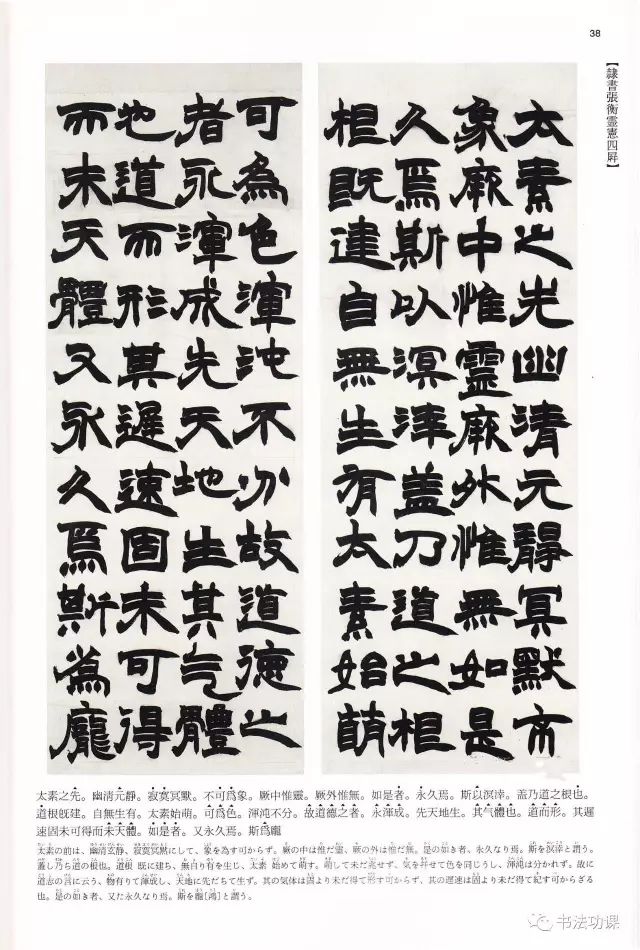 38
【隷書張衡靈憲四屛】
太素之先幽清元靜冥默不
象厥中惟靈厥外惟無如是
久焉斯以溟涬盖乃道之根
根既建自無生有太素始萌
可為色渾沌不分故道德之
者永渾成先天地生其气體
也道而形其遲速固未可得
而未天體又永久焉斯為龐
太素之先。幽清元靜。寂寞冥默。不可爲象。厥中惟靈。厥外惟無。如是者。永久焉。斯以溟涬。蓋乃道之根也。
道根既建。自無生有。太素始萌。可爲色。渾沌不分。故道德之者。永渾成。先天地生。其气體也。道而形。其遲
速固未可得而未天體。如是者。又永久焉。斯爲龐
太素の前は、幽清玄静、寂寞冥默にして、象を為す可からず。厥の中は惟だ靈、厥の外は惟だ無。是の如き者、永久なり焉。斯を溟涬と謂う。
蓋し乃ち道の根也。道根 既に建ち、無自り有を生じ、太素 始めて萌す。萌して未だ兆せず、気を并せて色を同じうし、渾沌は分かれず。故に
道志の言に云う、物有りて渾成し、天地に先だちて生ず。其の気体は固より未だ得て形す可からず、其の遅速は固より未だ得て紀す可からざる
也。是の如き者、又た永久なり焉。斯を龐[鴻]と謂う。
书法功课